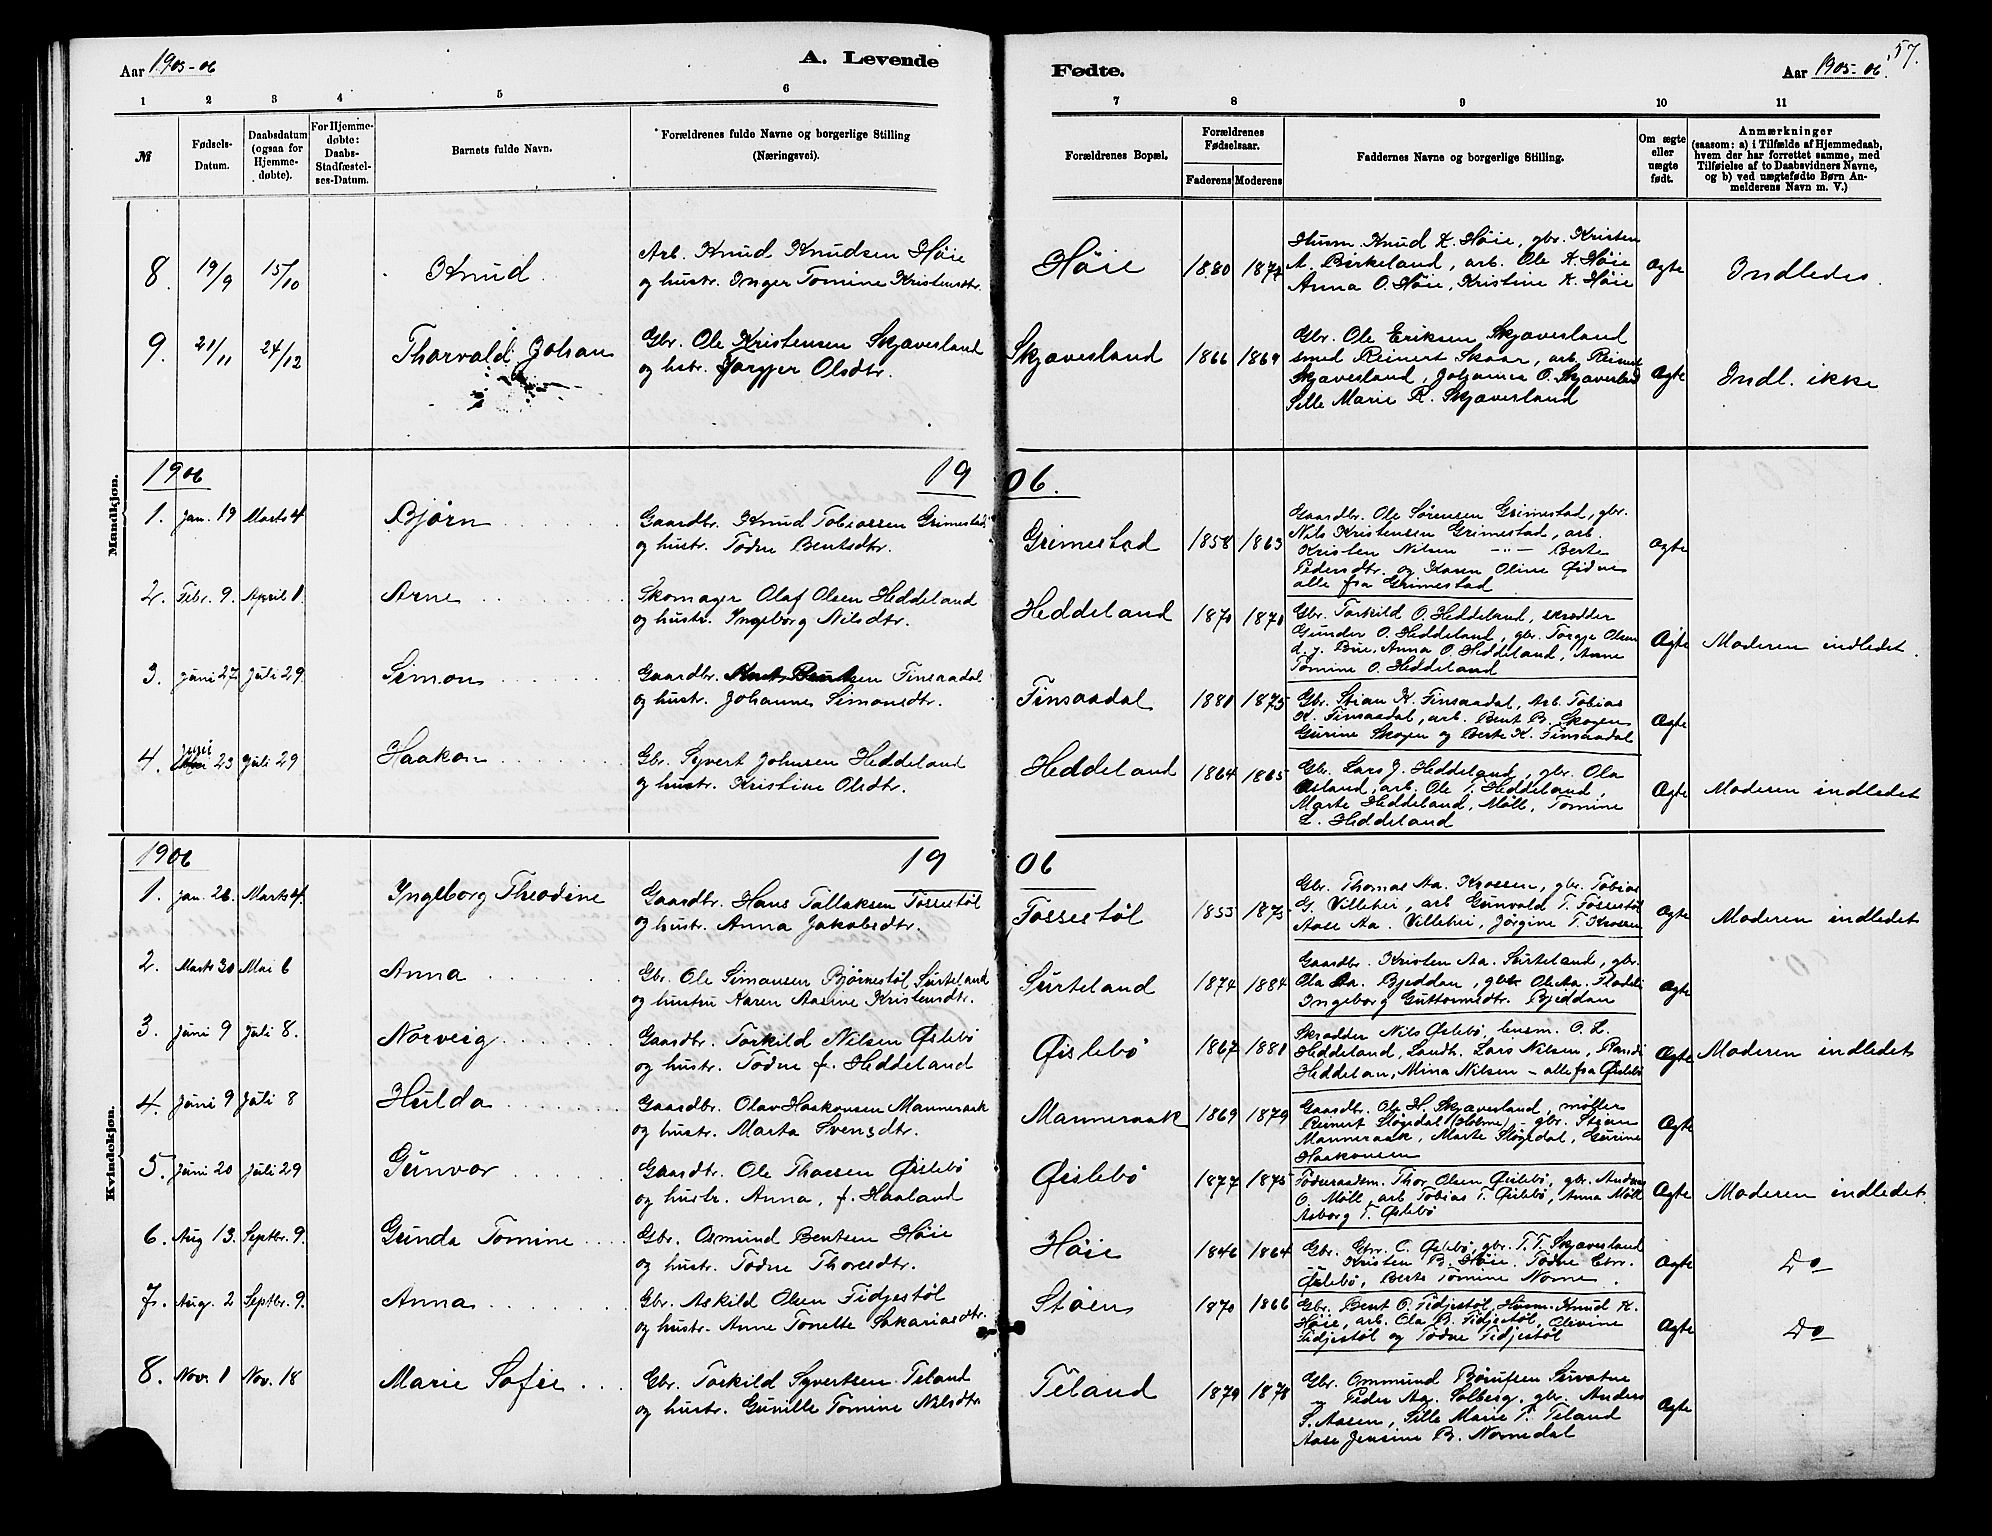 Aar 1905-06
A. Levende
Fødte.
Aar 1905-06.
57.
1 2 3 4 5 6 7 8 9 10 11
№
Fødsels-
Datum.
Daabsdatum
(ogsaa for
Hjemme-
døbte).
For Hjemme-
døbte:
Daabs-
Stadfæstel-
ses-Datum.
Barnets fulde Navn.
Forældrenes fulde Navne og borgerlige Stilling
(Næringsvei).
Forældrenes Bopæl.
Forældrenes
Fødselsaar.
Faderens Moderens
Faddernes Navne og borgerlige Stilling.
Om ægte
eller
uægte
født.
Anmærkninger
(saasom: a) i Tilfælde af Hjemmedaab,
hvem der har forrettet samme, med
Tilføielse af to Daabsvidners Navne,
og b) ved uægtefødte Børn An-
melderens Navn m. V.)
Mandkjøn.
8. 19/9 15/10 Knud
Arb. Knud Knudsen Høie
og hustr. Inger Tomine Kristensdtr.
Høie 1880 1874
Husm. Knud K. Høie, gbr. Kristen
A. Birkeland, arb. Ole K. Høie
Anna O. Høie, Kristine K. Høie
Ægte Indledes.
9. 21/11 24/12 Thorvald Johan
Gbr. Ole Kristensen Skjævesland
og hstr. Jorgjer Olsdtr.
Skjævesland 1866 1864
Gbr. Ole Eriksen Skjævesland
smed Reinert Skaar, arb. Reinert
Skjævesland, Johanna O. Skjævesland
Sille Marie R. Skjævesland
Ægte Indl. ikke
1906 1906.
1. Jan. 19 Marts 4 Bjørn
Gaardbr. Knud Tobiassen Grimestad
og hustr. Todne Bentsdtr.
Grimestad 1858 1863
Gaardbr. Ole Sørensen Grimestad, gbr.
Nils Kristensen Grimestad, arb.
Kristen Nilsen -"- Berte
Pedersdtr. og Karen Oline Øidne
alle fra Grimestad
Ægte
2. Febr. 9. April 1 Arne
Skomager Olaf Olsen Heddeland
og hustr. Ingeborg Nilsdtr.
Heddeland 1870 1870
Gbr. Torkild O. Heddeland, skrædder
Gunder O. Heddeland, gbr. Torgje Olsen
d. y. Bue, Anna O. Heddeland, Anne
Tomine O. Heddeland
Ægte Moderen indledet.
3. Juni 27 Juli 29 Simon
Gaardbr. Bentsen Finsaadal
og hustr. Johanne Simonsdtr.
Finsaadal 1881 1875
Gbr. Stian K. Finsaadal, Arb. Tobias
K. Finsaadal, arb. Bent B. Skogen
Gurine Skogen og Berte K. Finsaadal
Ægte
4. Juni 23 Juli 29 Haakon
Gbr. Syvert Johnsen Heddeland
og hustr. Kristine Olsdtr.
Heddeland 1864 1865
Gbr. Lars J. Heddeland, gbr. Ola
Øiland, arb. Ole T. Heddeland,
Marte Heddeland, Møll, Tomine
L. Heddeland
Ægte Moderen indledet
Kvindekjøn.
1906 1906
1. Jan. 26. Marts 4. Ingeborg Theodine
Gaardbr. Hans Tallaksen Tossestøl
og hustr. Anna Jakobsdtr.
Tossestøl 1853 1875
Gbr. Thomas Aa. Krossen, gbr. Tobias
G. Villehei, arb Gunvald T. Fossestøl
Aase Aa. Villehei, Jørgine T. Krossen
Ægte Moderen indledet
2. Marts 30 Mai 6 Anna
Gbr. Ole Simonsen Bjørnestøl Surteland
og hustru Karen Aasine Kristensdtr.
Surteland 1874 1884
Gaardbr. Kristen Aa. Surteland, gbr.
Ola Aa. Bjeddan, gbr Ole Aa. Fladeli
Ingeborg Guttormsdtr. Bjeddan
Ægte
3. Juni 9 Juli 8. Norveig
Gaardbr. Torkild Nilsen Øislebø
og hustr. Todne f. Heddeland
Øislebø 1867 1881
Skrædder Nils Øislebø, husm. O. L.
Heddeland, Landh. Lars Nilsen, Randi
Heddelan, Mina Nilsen – alle fra Øislebø
Ægte Moderen indledet
4. Juni 9 Juli 8 Hulda
Gaardbr. Olav Haakonsen Manneraak
og hustr. Marta Svensdtr.
Manneraak 1869 1879
Gaardbr. Ole H. Skjævesland, møller
Reinert Støgedal (Holme), gbr. Stian
Manneraak, Marte Støgedal, Gurine
Haakonsen
Ægte
5. Juni 20 Juli 29 Gunvor
Gaardbr. Ole Thorsen Øislebø
og hustr. Anna, f. Haaland
Øislebø 1877 1875
Føderaadsm. Thor Olsen Øislebø, gbr. Anders
O. Møll, arb Tobias T. Øislebø, Anna Møll
Aasborg T. Øislebø
Ægte Moderen indledet.
6. Aug 13. Septbr. 9. Gunda Tomine
Gbr. Osmund Bentsen Høie
og hustr. Todne Thorsdtr.
Høie 1846 1864
Gbr. O. Øislebø, gbr. T. T. Skjævesland
Kristen B. Høie, Todne
Øislebø, Berte Tomine Nome.
Ægte Do
7. Aug. 2 Septbr. 9. Anna
Gbr. Askild Olsen Fidjestøl
og hustr. Anne Tonette Sakariasdtr.
Støen 1870 1866
Gbr. Bent O. Fidjestøl, Husm. Knud K.
Høie, arb. Ola B. Fidjestøl, Olivine
Fidjestøl og Todne Fidjestøl
Ægte Do
8. Nov. 1 Nov. 18 Marie Sofie
Gbr. Torkild Syvertsen Teland
og hustr. Gunille Tomine Nilsdtr.
Teland 1879 1878
Gbr. Ommund Børufsen Survatne
Peder Aag. Solberg, gbr. Anders
S. Aasen, Sille Marie T. Teland
Aase Jensine B. Nomedal
Ægte